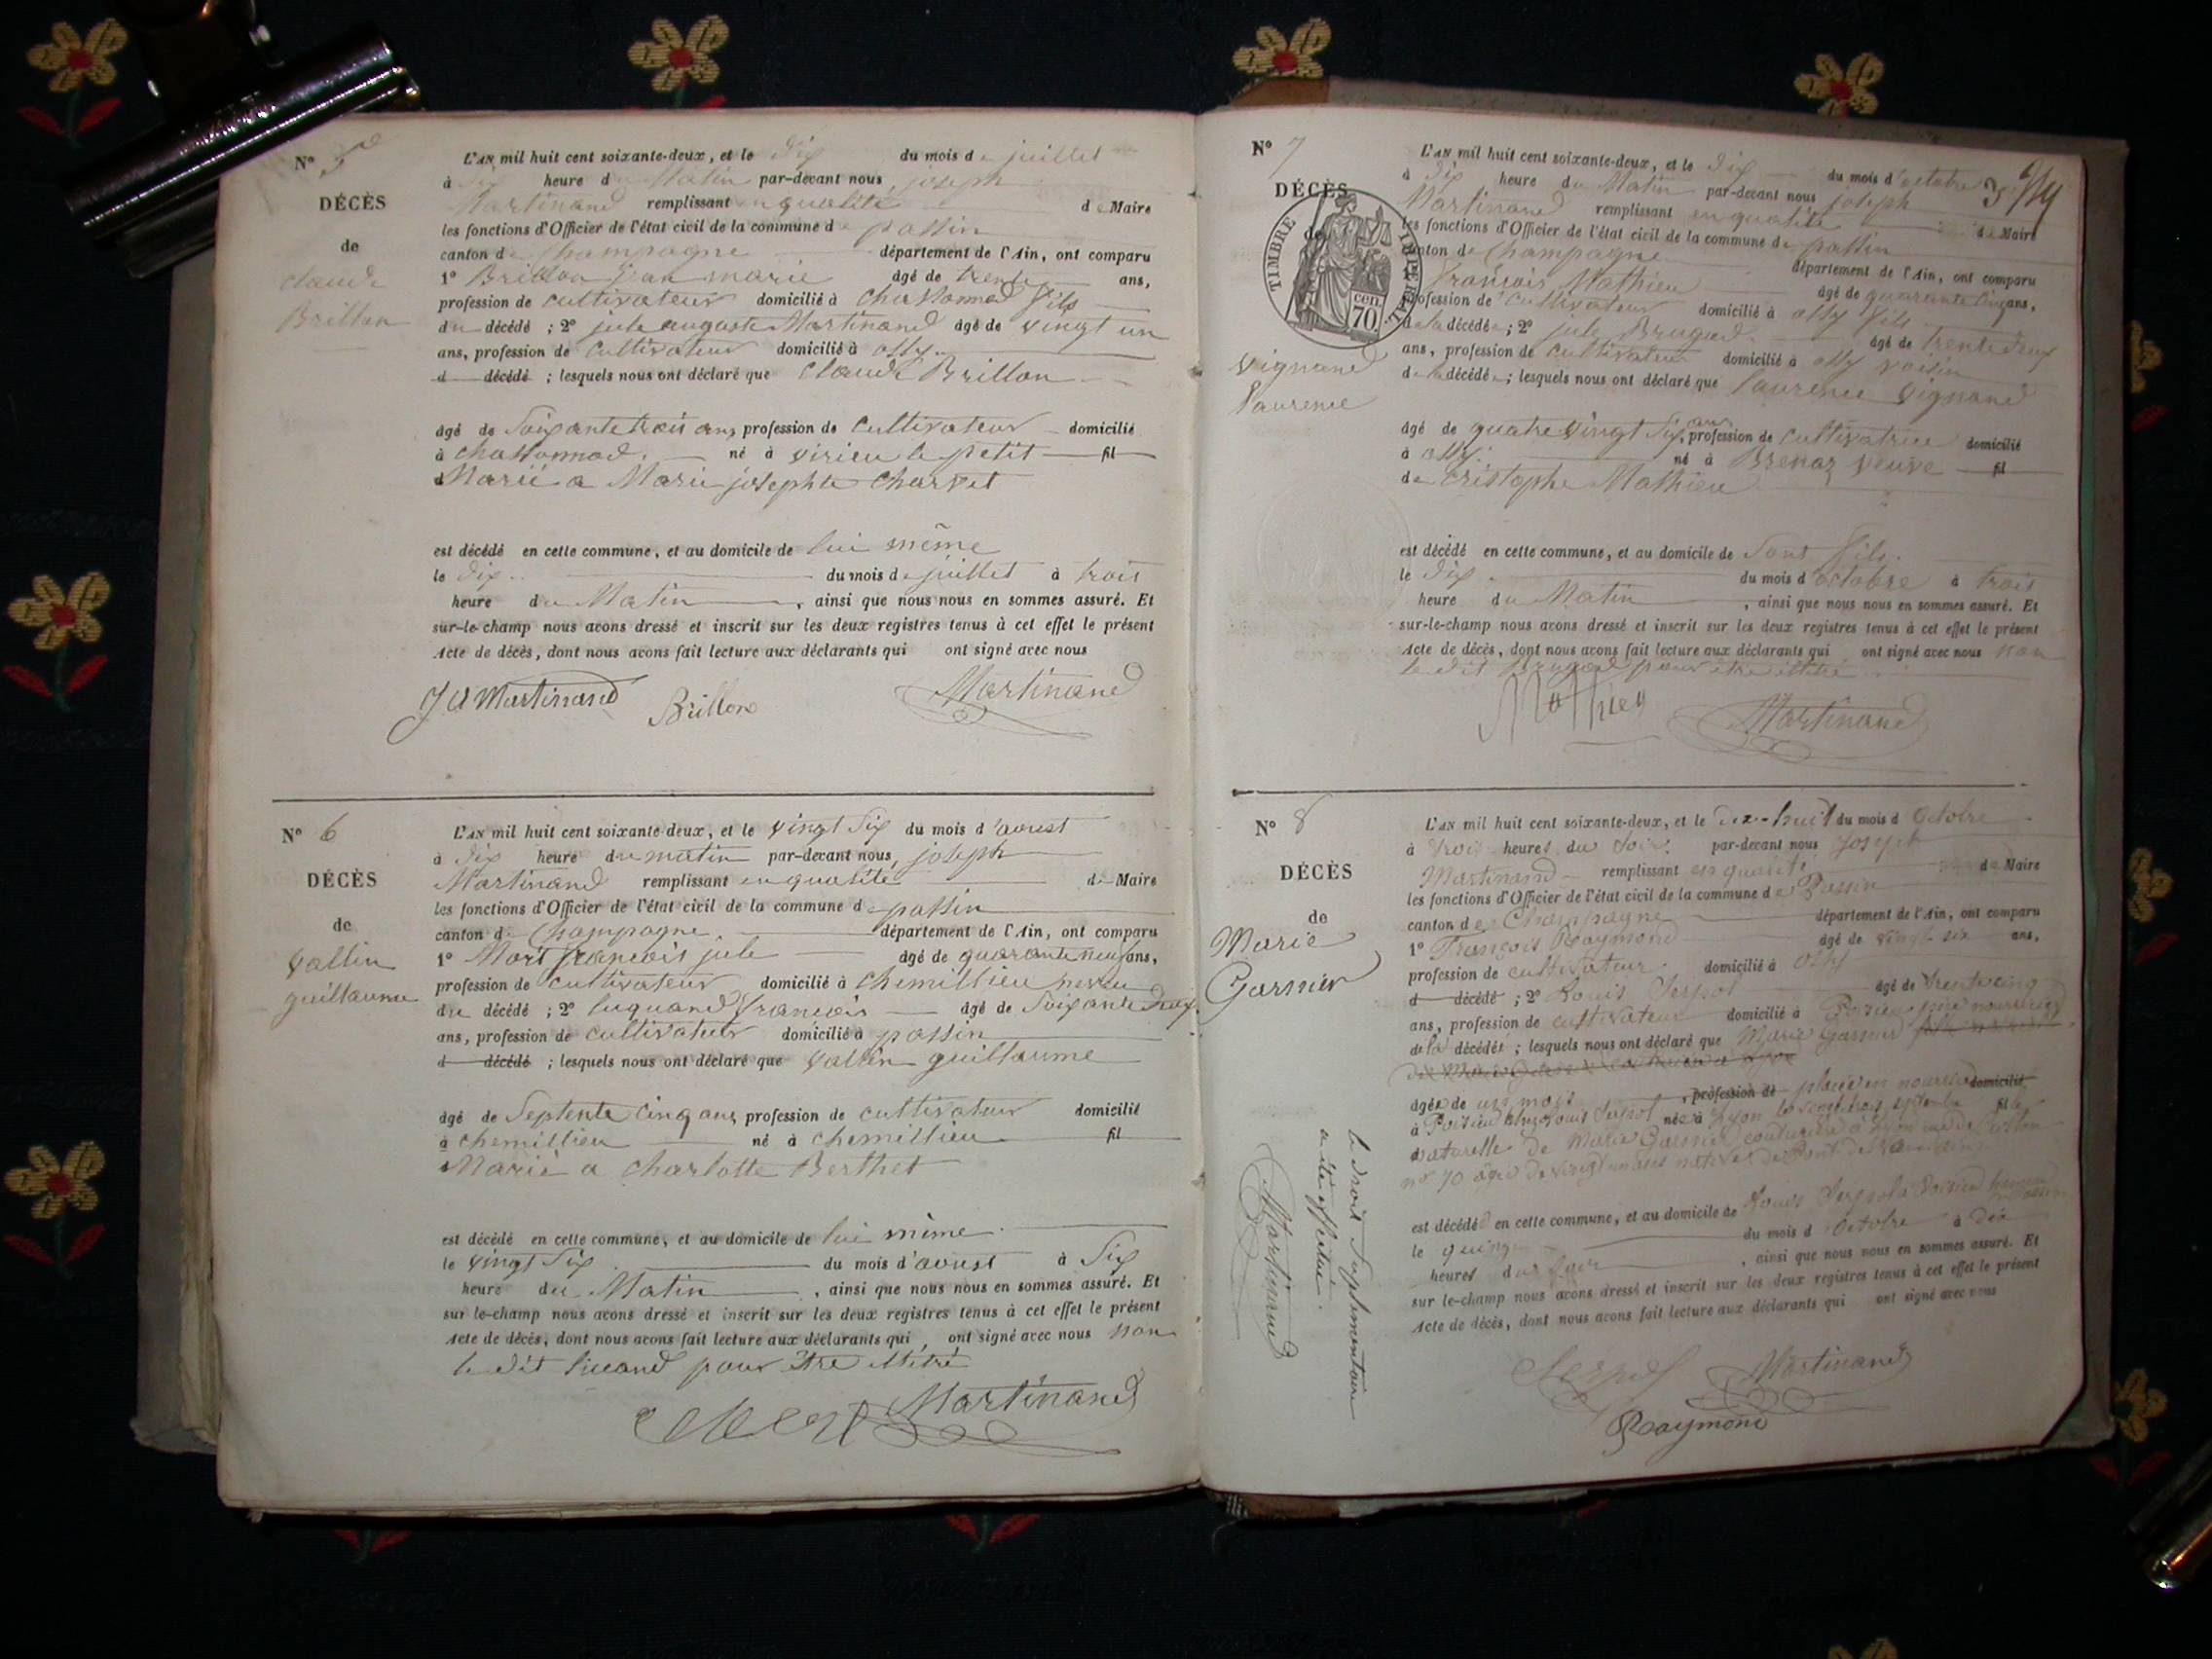 N° 5
DÉCÈS
de
Claude
Brillon
L'AN mil huit cent soixante-deux, et le dix du mois de juillet
à dix heure du Matin par-devant nous, joseph
Martinand remplissant en qualité de Maire
les fonctions d'Officier de l'état civil de la commune de passin
canton de Champagne département de l'Ain, ont comparu
1° Brillon jean marie âgé de trente ans,
profession de cultivateur domicilié à chassonod fils
du décédé ; 2° jule auguste Martinand âgé de vingt un
ans, profession de cultivateur domicilié à ossy
d décédé ; lesquels nous ont déclaré que Claude Brillon
âgé de Soixante trois ans, profession de cultivateur domicilié
à chassonnod. né à virieu le petit fil
Marié a Marie josephte Charvet
est décédé en cette commune, et au domicile de lui même
le dix du mois de juillet à trois
heure du Matin, ainsi que nous nous en sommes assuré. Et
sur-le-champ nous avons dressé et inscrit sur les deux registres tenus à cet effet le présent
Acte de décès, dont nous avons fait lecture aux déclarants qui ont signé avec nous
J A Martinand Brillon Martinand
N° 6
DÉCÈS
de
vallin
guillaume
L'AN mil huit cent soixante-deux, et le vingt six du mois d'aoust
à dix heure du matin par-devant nous, joseph
Martinand remplissant en qualité de Maire
les fonctions d'Officier de l'état civil de la commune de passin
canton de Champagne département de l'Ain, ont comparu
1° françois jule âgé de quarante neuf ans,
profession de cultivateur domicilié à chemillieu neveu
du décédé ; 2° françois âgé de Soixante deux
ans, profession de cultivateur domicilié à passin
d décédé ; lesquels nous ont déclaré que vallin guillaume
âgé de Septente cinq ans, profession de cultivateur domicilié
à chemillieu né à chemillieu fil
Marié a charlotte Berthet
est décédé en cette commune, et au domicile de lui même
le vingt six du mois d'aoust à Six
heure du Matin, ainsi que nous nous en sommes assuré. Et
sur le-champ nous avons dressé et inscrit sur les deux registres tenus à cet effet le présent
Acte de décès, dont nous avons fait lecture aux déclarants qui, ont signé avec nous non
le dit pour être illitré
Martinand
N° 7
3
DÉCÈS
de
TIMBRE IMPÉRIAL
70 cen.
vignand
laurence
L'AN mil huit cent soixante-deux, et le dix du mois d'octobre
à dix heure du Matin par-devant nous joseph
Martinand remplissant en qualité de Maire
les fonctions d'Officier de l'état civil de la commune de passin
canton de Champagne département de l'Ain, ont comparu
françois Mathieu âgé de quarante cinq ans,
profession de cultivateur domicilié à ossy fils
de la décédé ; 2° jule Brugod âgé de trente deux
ans, profession de cultivateur domicilié à ossy voisin
de la décédé ; lesquels nous ont déclaré que laurence vignand
âgé de quatre vingt Six ans, profession de cultivatrice domicilié
à ossy. né à Brenaz veuve fil
de cristophe Mathieu
est décédé en cette commune, et au domicile de Sont fils.
le dix du mois d'octobre à trois
heure du Matin, ainsi que nous nous en sommes assuré. Et
sur-le-champ nous avons dressé et inscrit sur les deux registres tenus à cet effet le présent
Acte de décès, dont nous avons fait lecture aux déclarants qui ont signé avec nous non
le dit Brugod pour être illitré
Mathieu Martinand
N° 8
DÉCÈS
de
Marie
Garnier
L'AN mil huit cent soixante-deux, et le dix-huit du mois d Octobre
à trois heures du soir par-devant nous Joseph
Martinand remplissant en qualité de Maire
les fonctions d'Officier de l'état civil de la commune de Passin
canton de Champagne département de l'Ain, ont comparu
1° François Raymond âgé de vingt-six ans,
profession de cultivateur domicilié à Ossy
d décédé ; 2° Louis âgé de trente cinq
ans, profession de cultivateur domicilié à Poisieu père nourricier
de la décédée ; lesquels nous ont déclaré que Marie Garnier
âgée de un mois, profession de placée en nourrice domicilié
à Poisieu chez Louis née à Lyon le vingt trois septembre fille
naturelle de Marie Garnier couturière à Lyon rue
n° 70 âgée de vingt un ans native de Pont de
est décédé en cette commune, et au domicile de Louis à Poisieu
le quinze du mois d Octobre à dix
heures du Soir, ainsi que nous nous en sommes assuré. Et
sur le-champ nous avons dressé et inscrit sur les deux registres tenus à cet effet le présent
Acte de décès, dont nous avons fait lecture aux déclarants qui ont signé avec nous
Martinand
Raymond
le droit Supplementaire
a été effectué.
Martinand